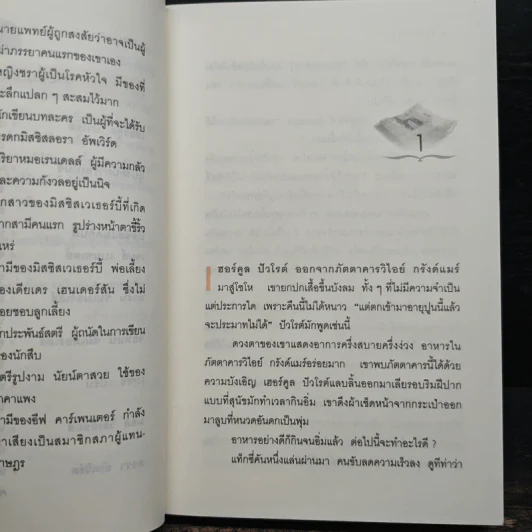 นายแพทย์ผู้ถูกสงสัยว่าอาจเป็นผู้
ฆ่าภรรยาคนแรกของเขาเอง
หญิงชราผู้เป็นโรคหัวใจ มีของที่
ระลึกแปลก ๆ สะสมไว้มาก
นักเขียนบทละคร เป็นผู้ที่จะได้รับ
มรดกมิสซิสลอรา อัพเวิร์ด
ภริยาหมอเรนเดลล์ ผู้มีความกลัว
และความกังวลอยู่เป็นนิจ
ลูกสาวของมิสซิสเวเธอร์บี้ที่เกิด
จากสามีคนแรก รูปร่างหน้าตาขี้ริ้ว
เหร่
สามีของมิสซิสเวเธอร์บี้ พ่อเลี้ยง
ของเดียเดร เฮนเดอร์สัน ซึ่งไม่
ค่อยชอบลูกเลี้ยง
นักประพันธ์สตรี ผู้ถนัดในการเขียน
ของนักสืบ
สตรีรูปงาม นัยน์ตาสวย ใช้ของ
ราคาแพง
สามีของอีฟ คาร์เพนเตอร์ กำลัง
หาเสียงเป็นสมาชิกสภาผู้แทน-
ราษฎร
1
เฮอร์คูล ปัวโรต์ ออกจากภัตตาคารวิไอย์ กรังด์แมร์
มาสู่โซโห เขายกปกเสื้อขึ้นบังลม ทั้ง ๆ ที่ไม่มีความจำเป็น
แต่ประการใด เพราะคืนนี้ไม่ได้หนาว "แต่ตกเข้ามาอายุปูนนี้แล้ว
จะประมาทไม่ได้" ปัวโรต์มักพูดเช่นนี้
ดวงตาของเขาแสดงอาการครึ่งสบายครึ่งง่วง อาหารใน
ภัตตาคารวิไอย์ กรังด์แมร์อร่อยมาก เขาพบภัตตาคารนี้ได้ด้วย
ความบังเอิญ เฮอร์คูล ปัวโรต์แลบลิ้นออกมาเลียรอบริมฝีปาก
แบบที่สุนัขมักทำเวลากินอิ่ม เขาดึงผ้าเช็ดหน้าจากกระเป๋าออก
มาลูบที่หนวดอันดกเป็นพุ่ม
อาหารอย่างดีก็กินจนอิ่มแล้ว ต่อไปนี้จะทำอะไรดี ?
แท็กซี่คันหนึ่งแล่นผ่านมา คนขับลดความเร็วลง ดูทีท่าว่า